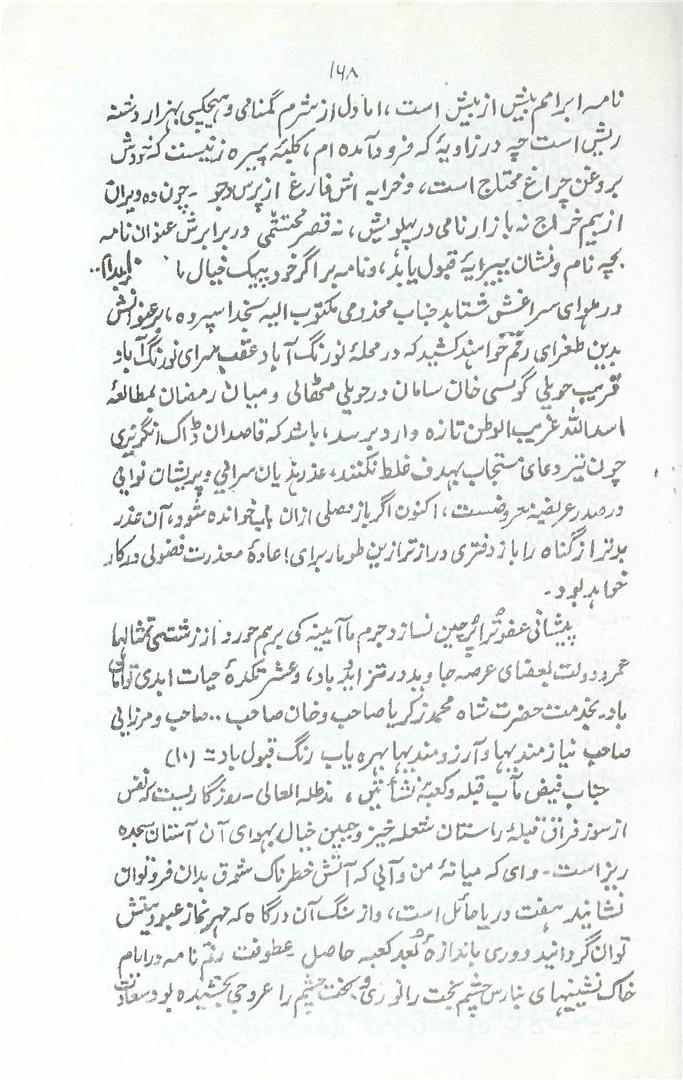 ۱۶۸
نامہ ابرامم بیش از بیش است، اما دل از شرم گمنامی و ہیچکسی بہزار دشنہ
ریش است چہ در زاویۂ کہ فرود آمدہ ام، کلبۂ پیرہ زنیست کہ خودش
بروغن چراغ محتاج است، و خرابہ اش فارغ از پرس وجو ۔ چون دہ ویران
از بیم خراج نہ بازار نامی در پہلویش، نہ قصر محتشمی در برابرش عنوان نامہ
بچہ نام و نشان پیرایۂ قبول یابد، و نامہ بر اگر خود پیک خیال ما
در ہوای سراغش شتابد جناب مخدومی مکتوب الیہ بخدا سپردہ، بر عنوانش
بدین طغرای رقم خواہند کشید کہ در محلۂ نورنگ آباد عقب سرای نورنگ آباد
قریب حویلی گوسی خان سامان در حویلی مٹھالی و میان رمضان بمطالعۂ
اسد اللہ غریب الوطن تازہ وارد برسد، باشد کہ قاصدان ڈاک انگریزی
چون تیر دعای مستجاب بہدف غلط نکنند، عذر ہذیان سرائی و پریشان نوائی
در صدر عریضہ معروضست، اکنون اگر باز فصلی ازان باب خواندہ شود، آن عذر
بدتر از گناہ را باز دفتری دراز تر ازین طومار برای اعادۂ معذرت فضولی درکار
خواہد بود۔
پیشانی عفو ترا پرچین نسازد جرم ما آیینہ کی برہم خورد از زشتی تمثالہا
عمر و دولت بعضای عرصہ جاوید در تزاید باد، و عشرتکدۂ حیات ابدی توامان
باد۔ بخدمت حضرت شاہ محمد زکریا صاحب و خان صاحب ۰۰ صاحب و مرزائی
صاحب نیازمندیہا و آرزومندیہا بہرہ یاب رنگ قبول باد = (۱۰)
جناب فیض مآب قبلہ و کعبۂ نشأتین، مدظلہ العالی ۔ روزگاریست کہ نفس
از سوز فراق قبلۂ راستان شعلہ خیز و جبین خیال بہوای آن آستان سجدہ
ریز است۔ وای کہ میانۂ من و آبی کہ آتش خطرناک شوق بدان فرو توان
نشانید ہفت دریا حائل است، و از سنگ آن درگاہ کہ مہر نماز عبودیتش
توان گردانید دوری باندازۂ بعد کعبہ حاصل ۔ عطوفت رقم نامہ در ایام
خاک نشینیہای بنارس چشم بخت را نوری و بخت چشم را عروجی بخشیدہ بود و سعادت